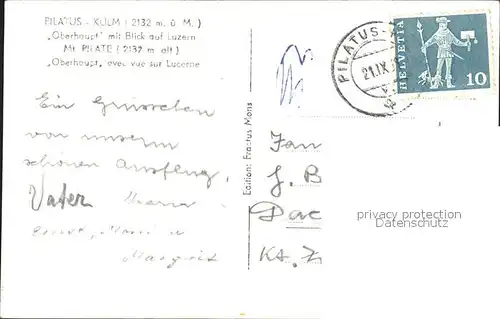 PILATUS - KULM (2132 m. ü. M.)
„Oberhaupt" mit Blick auf Luzern
Mt. PILATE (2132 m alt)
„Oberhaupt, avec vue sur Lucerne
PILATUS-
21.IX.
HELVETIA
10
Ein Grüsschen
von unserm
schönen Ausflug,
Vater
Margrit
Edition: Fractus Mons
Fam
J. B
Kt. Z
privacy protection
Datenschutz